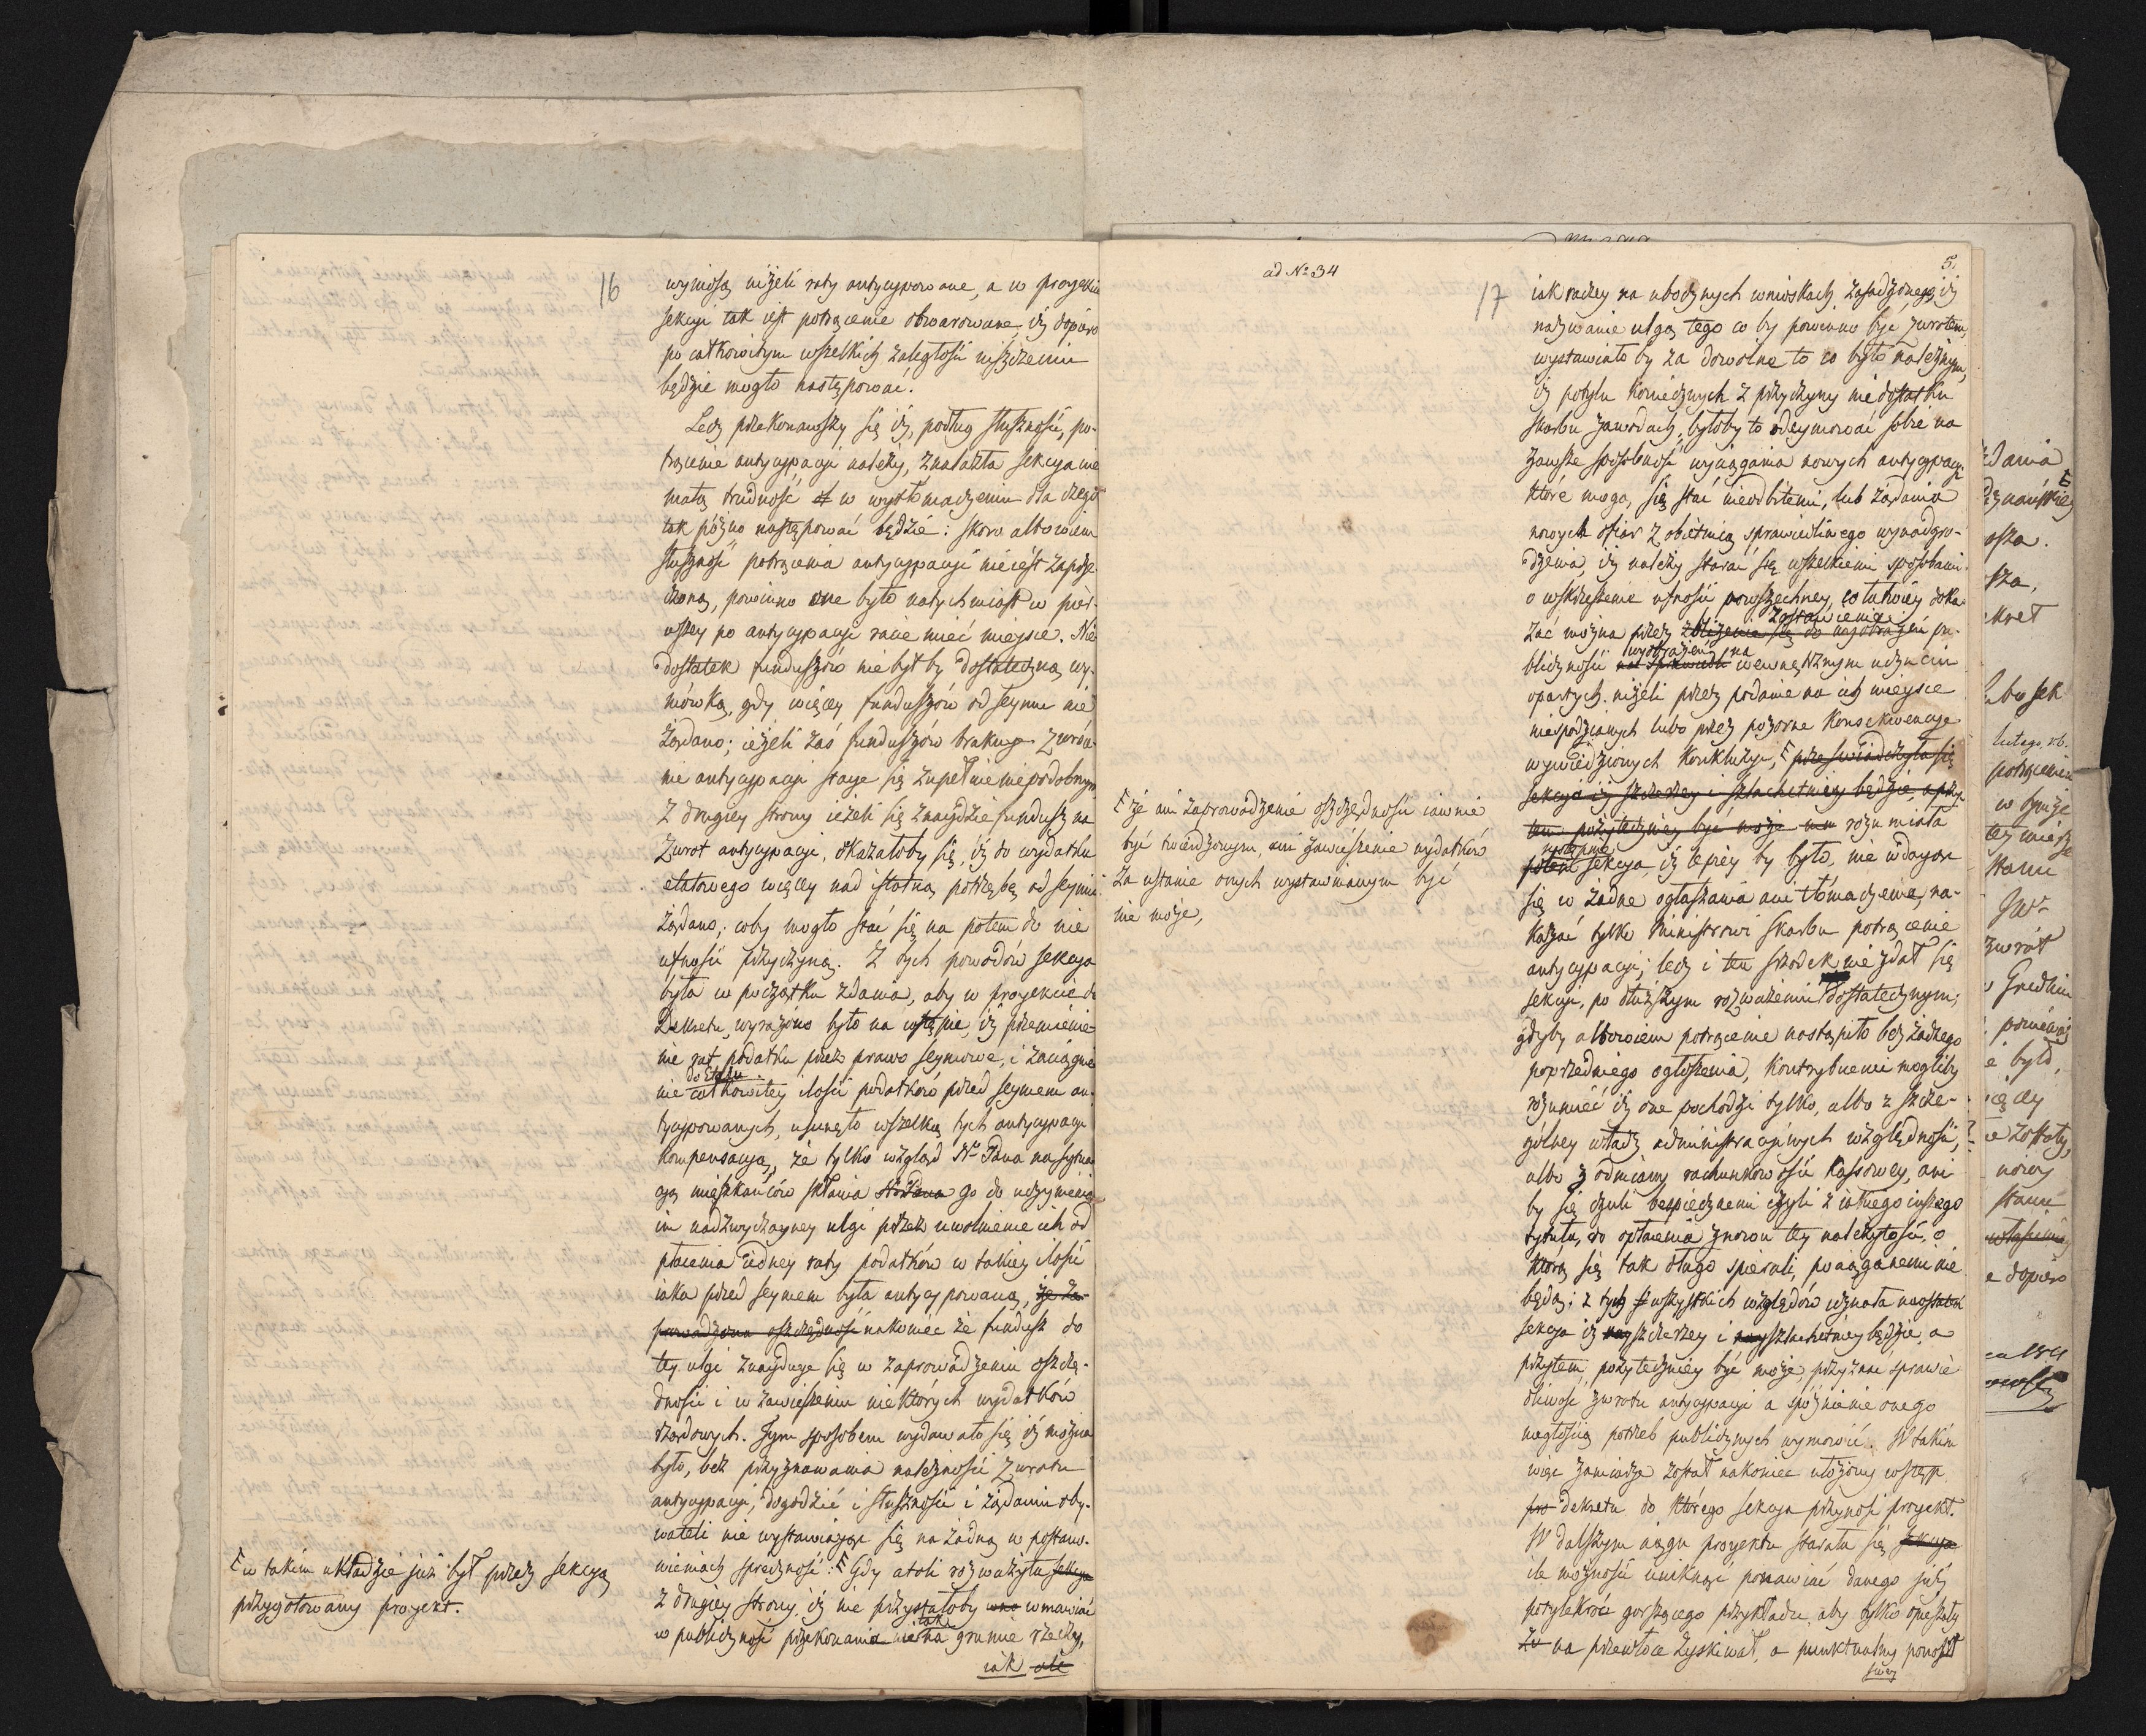 16
wyniosą niżeli raty antycypowane, a w proyekcie
sekcyi tak iest potrącenie obwarowane, iż dopiero
po całkowitym wszelkich zaległości uiszczeniu
będzie mogło następować.
Lecz przekonawszy się iż, podług słuszności, po-
trącenie antycypacyi należy, znalazła sekcya nie
małą trudność w wytłomaczeniu dla czego
tak późno następować będzie: skoro albowiem
słuszność potrącenia antycypacyi nie iest zaprze-
czoną, powinno one było natychmiast w pier-
wszey po antycypacyi racie mieć mieysce. Nie
dostatek funduszów nie był by dostateczną wy-
mówką, gdy więcey funduszów od seymu nie
żądano; ieżeli zaś funduszów brakuie zwróce-
nie antycypacyi staie się zupełnie niepodobnym
Z drugiey strony ieżeli się znaydzie fundusz na
zwrot antycypacyi, okazałoby się, iż do wydatku
etatowego więcey nad istotną potrzebę od seymu
żądano; coby mogło stać się na potem do nie
ufności przyczyną. Z tych powodów sekcya
była w początku zdania, aby w proyekcie do
Dekretu, wyrażono było na wstępie, iż przemienie-
nie rat podatku przez prawo seymowe, i zaciągnie
do Etatu
nie całkowitey ilości podatków przed seymem an-
tycypowanych, usunęło wszelką tych antycypacyi
kompensacyą, że tylko wzgląd Nº Pana na sytua
cyą mieszkańców skłania go do udzielenia
im nadzwyczayney ulgi przez uwolnienie ich od
płacenia iedney raty podatków w takiey ilości
iaka przed seymem była antycypowaną, że za-
prowadzona oszczędność nakoniec że fundusz do
tey ulgi znayduie się w zaprowadzeniu oszczę-
dności i w zawieszeniu niektórych wydatków
rządowych. Tym sposobem wydawało się iż można
było, bez przyznawania należności zwrotu
antycypacyi, dogodzić i słuszności i żądaniu oby-
wateli nie wystawiając się na żadną w postano-
wieniach sprzeczność. Gdy atoli rozważyła sekcya
z drugiey strony, iż nie przystałoby wmawiać
tak
w publiczność przekonania nie na gruncie rzeczy,
iak ale
w takim układzie już był przez sekcyą
przygotowany proyekt.
ad Nº 34
5.
17
iak raczey na ubocznych wnioskach zasadzonego, iż
nazwanie ulgą tego co by powinno być zwrotem,
wystawiało by za dowolne to co było należnym,
iż potylu koniecznych z przyczyny niedostatku
skarbu zawodach, byłoby to odeymować sobie na
zawsze sposobność wyciągania nowych antycypacyi
które mogą się stać nieodbitemi, lub żądania
nowych ofiar z obietnicą sprawiedliwego wynadgro-
dzenia, iż należy starać się wszelkiemi sposobami
o wskrzeszenie ufności powszechney, co łatwiey doka-
zostawienie
zać można przez zbliżenie się do wyobrażeń pu-
wyobrażeń na
bliczności wewnętrznym uczuciu
opartych, niżeli przez podanie na ich mieysce
niespodzianych lubo przez pozorne konsekwencye
wywiedzionych konkluzyi, przeświadczyła się
sekcya iż szczerzey i szlachetniey będzie, a przy-
tem pożyteczniey być może rozumiała
następnie
potem sekcya, iż lepiey by było, nie wdaiąc
się w żadne ogłaszania ani tłómaczenia, na-
kazać tylko Ministrowi Skarbu potrącenie
antycypacyi; lecz i ten środek nie zdał się
sekcyi, po dłuższym rozważeniu dostatecznym;
gdyby albowiem potrącenie nastąpiło bez żadnego
poprzedniego ogłoszenia, kontrybuenci mogliby
rozumieć iż one pochodzi tylko, albo z szcze-
gólney władz administracyinych względności,
albo z odmiany rachunkowości kassowey, ani
by się czuli bezpiecznemi czyli z iakiego inszego
tytułu, do opłacenia znowu tey należytości, o
którą się tak długo spierali, pociąganemi nie
będą; z tych wszystkich względów uznała naostatek
sekcya iż szczerzey i szlachetniey będzie, a
przytem pożyteczniey być może, przyznać sprawie
dliwość zwrotu antycypacyi a spóźnienie onego
nagłością potrzeb publicznych wymówić. W takim
więc zamiarze został nakoniec ułożony wstęp
pro dekretu do którego sekcya przynosi proyekt.
W dalszym ciągu proyektu starała się sekcya
ile możności uniknąć ponawiać danego już
potylekroć gorszącego przykładu, aby tylko opieszały
na przewłoce zyskiwał, a punktualny ponosił
swey
że ani zaprowadzenie oszczędności iawnie
być twierdzonym, ani zawieszenie wydatków
za ustanie onych wystawianym być
nie może,
zdania
osza.
sza,
kret
lubo sek
lutego, r.b.
potrącenie
w tymże
stanu
zwrót
Grudniu
ponieważ
e było,
ięcey
e zostały,
nowey
stanu
e dopiero